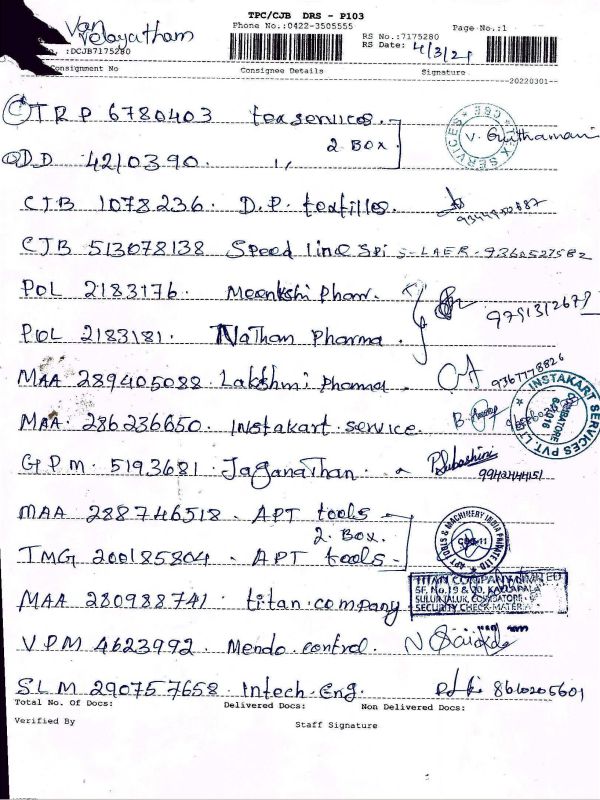 TPC/CJB DRS - P103
Van
Velayatham
Phone No.:0422-3505555
Page No.:1
RS No.:7175280
No. :DCJB7175280
RS Date: 4/3/21
Consignment No Consignee Details Signature
20220301--
TRP 6780403 tex services.
2 Box
V. Guithamani
TEX SERVICES CBE
DD 4210390. 1,
CJB 1078236. D.P. textilles.
CJB 513078138 Speed line Spi
POL 2183176. Meenkshi Pham.
9791312677
POL 2183181. Nathan Pharma.
MAA 289405088 Lakshmi Pharma
9367778826
MAA. 286236650. instakart service.
INSTAKART SERVICES PVT. LTD
COIMBATORE
GPM. 5193681 Jaganathan.
MAA 288746518 - APT tools
2 Box.
APT TOOLS & MACHINERY INDIA PRIVATE LTD
TMG 200185804 - APT tools
TITAN COMPANY LIMITED
SF. No.19 & 20,
SULUR TALUK, COIMBATORE -
SECURITY CHECK-MATERIAL
MAA 280988741. titan.company
V.P.M 4623992 Mendo control.
SLM 290757658. Intech.Eng. 8610205601
Total No. Of Docs: Delivered Docs: Non Delivered Docs:
Verified By Staff Signature